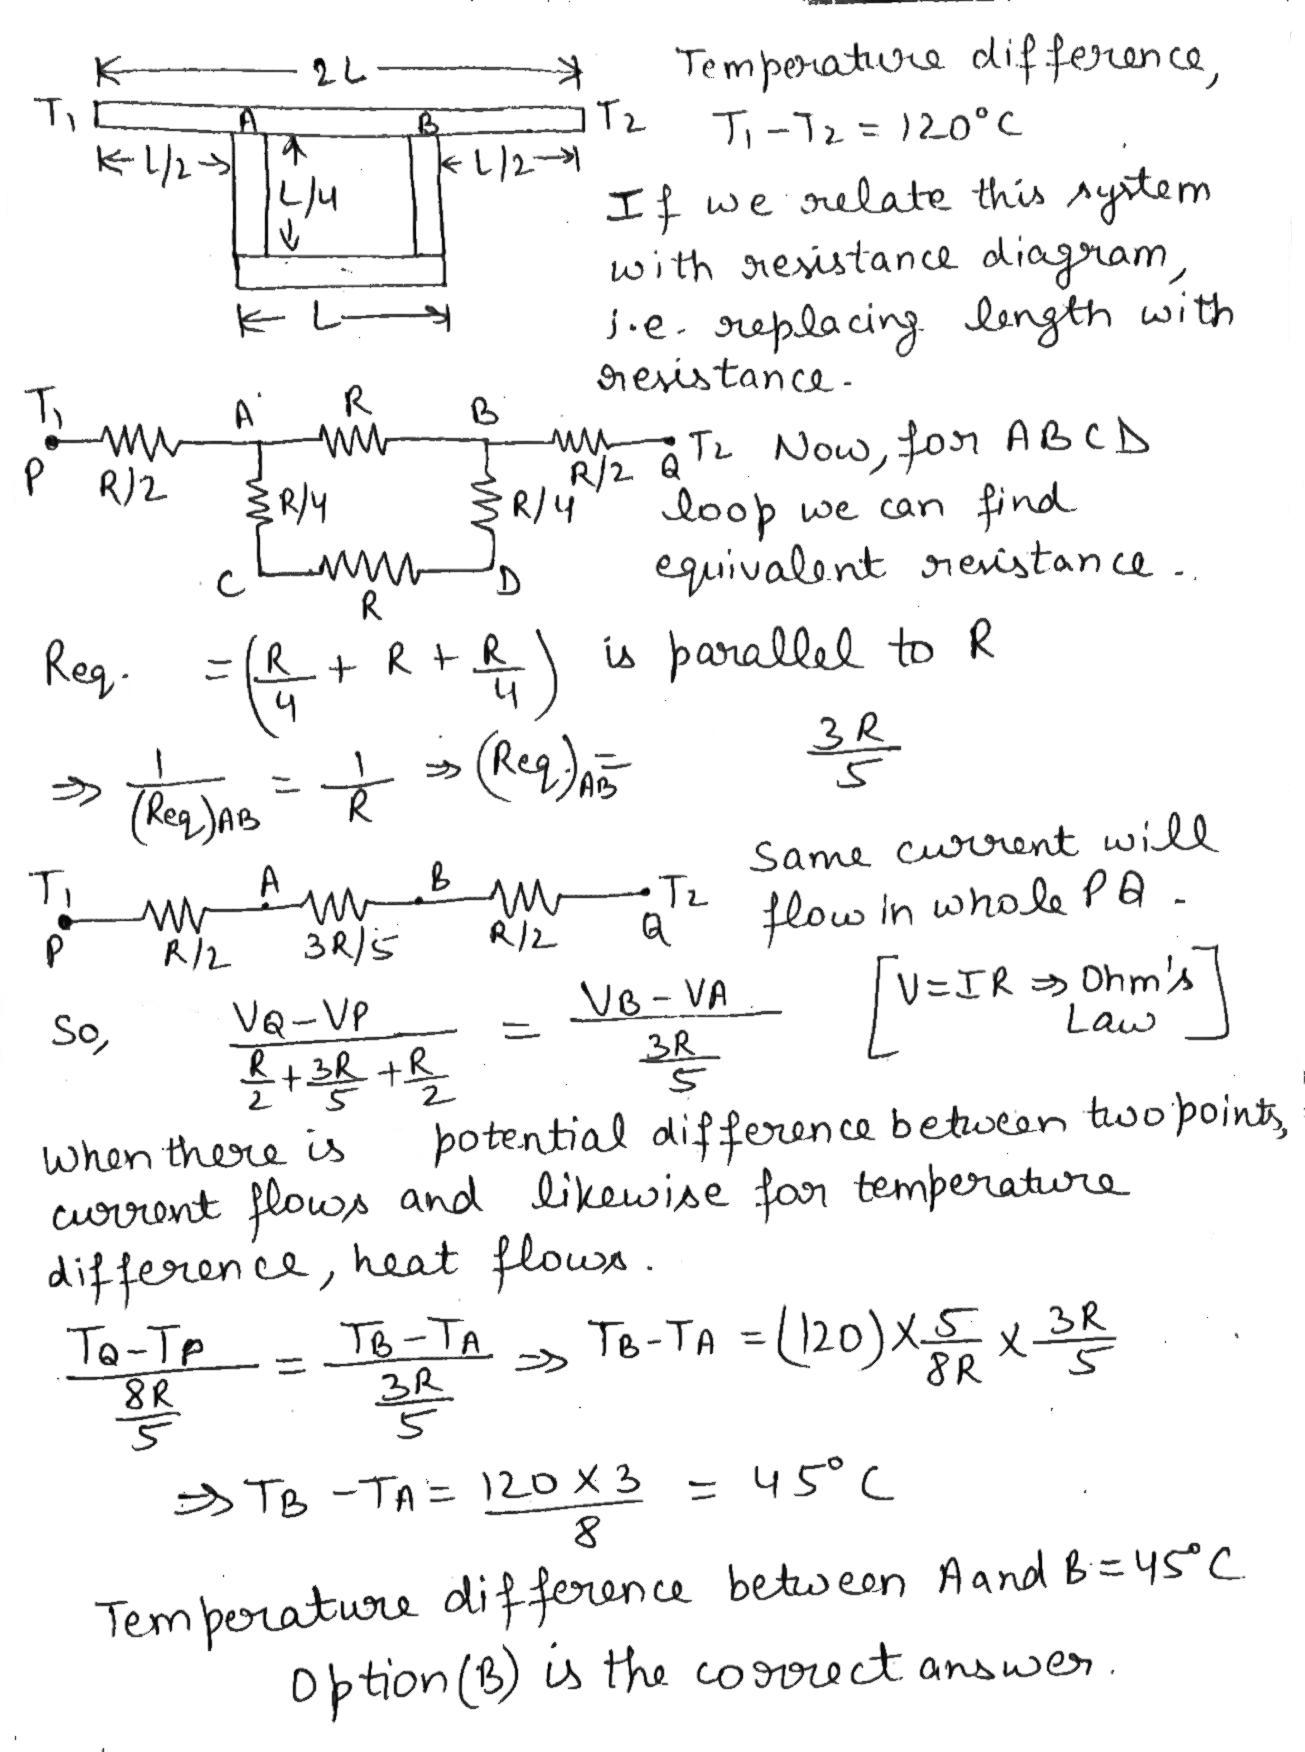 2L
Temperature difference,
T1 A B T2 T1 - T2 = 120°C
L/2 L/2
L/4
If we relate this system
with resistance diagram,
L
i.e. replacing length with
resistance.
T1 A R B
P R/2 R/2 Q T2 Now, for ABCD
R/4 R/4 loop we can find
C R D equivalent resistance.
Req. = (R/4 + R + R/4) is parallel to R
⇒ 1/(Req)AB = 1/R ⇒ (Req.)AB = 3R/5
Same current will
T1 A B T2 flow in whole PQ.
P R/2 3R/5 R/2 Q
So, VQ - VP / R/2 + 3R/5 + R/2 = VB - VA / 3R/5 [V = IR ⇒ Ohm's Law]
When there is potential difference between two points,
current flows and likewise for temperature
difference, heat flows.
TQ - TP / 8R/5 = TB - TA / 3R/5 ⇒ TB - TA = (120) × 5/8R × 3R/5
⇒ TB - TA = 120 × 3 / 8 = 45°C
Temperature difference between A and B = 45°C
Option (B) is the correct answer.